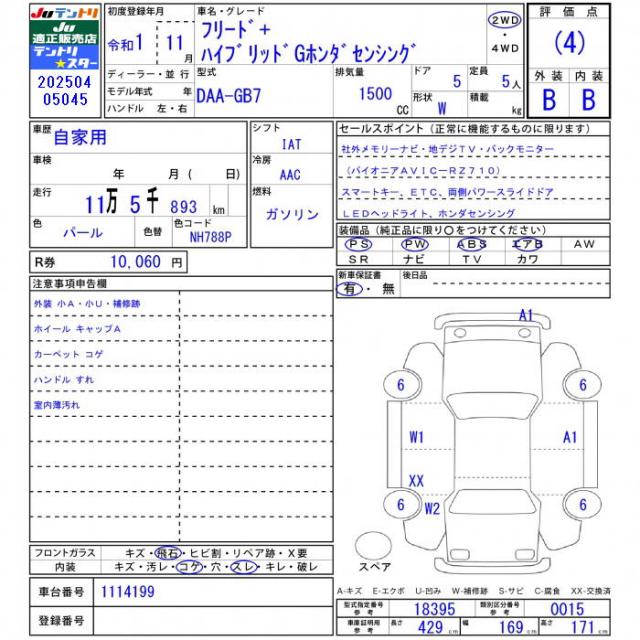 Juテントリ
Ju
適正販売店
テントリ
★スター
202504
05045
初度登録年月
令和1
11月
ディーラー・並行
モデル年式 年
ハンドル 左・右
車名・グレード
フリード+
ハイブリッドGホンダセンシング
2WD
・
4WD
型式
DAA-GB7
排気量
1500
CC
ドア
5
定員
5人
形状
W
積載
kg
評価点
(4)
外装 内装
B B
車歴
自家用
車検
年 月( 日)
走行
11万 5千 893 km
色
パール
色替
色コード
NH788P
R券 10,060 円
シフト
IAT
冷房
AAC
燃料
ガソリン
セールスポイント(正常に機能するものに限ります)
社外メモリーナビ・地デジTV・バックモニター
(パイオニアAVIC-RZ710)
スマートキー、ETC、両側パワースライドドア
LEDヘッドライト、ホンダセンシング
装備品(純正品に限り○をつけてください)
PS PW ABS エアB AW
SR ナビ TV カワ
新車保証書
有・無
後日品
注意事項申告欄
外装 小A・小U・補修跡
ホイール キャップA
カーペット コゲ
ハンドル すれ
室内薄汚れ
A1
6 6
W1 A1
XX
6 W2 6
スペア
フロントガラス キズ・飛石・ヒビ割・リペア跡・X要
内装 キズ・汚レ・コゲ・穴・スレ・キレ・破レ
車台番号 1114199
登録番号
A-キズ E-エクボ U-凹み W-補修跡 S-サビ C-腐食 XX-交換済
型式指定番号 参考 18395 類別区分番号 参考 0015
車庫証明用 参考 長さ 429 cm 幅 169 cm 高さ 171 cm